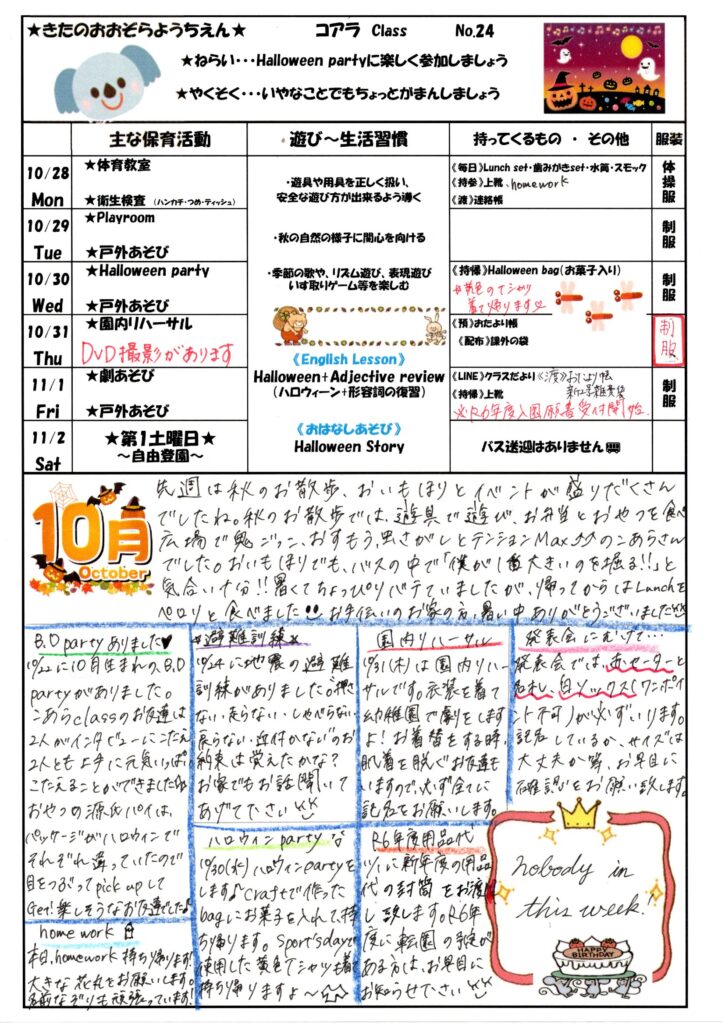 ★きたのおおぞらようちえん★
コアラ Class No.24
★ねらい・・・Halloween partyに楽しく参加しましょう
★やくそく・・・いやなことでもちょっとがまんしましょう
主な保育活動
遊び～生活習慣
持ってくるもの ・ その他
服装
10/28
Mon
★体育教室
★衛生検査 (ハンカチ・つめ・ティッシュ)
《毎日》Lunch set・歯みがきset・水筒・スモック
《持参》上靴、homework
《渡》連絡帳
体操服
10/29
Tue
★Playroom
★戸外あそび
制服
10/30
Wed
★Halloween party
★戸外あそび
《持帰》Halloween bag(お菓子入り)
※黄色のTシャツ
着て帰ります
制服
10/31
Thu
★園内リハーサル
DVD撮影があります
《預》おたより帳
《配布》課外の袋
制服
11/1
Fri
★劇あそび
★戸外あそび
《LINE》クラスだより《渡》おたより帳
《持帰》上靴
※R6年度入園願書受付開始
制服
11/2
Sat
★第1土曜日★
～自由登園～
バス送迎はありません
・遊具や用具を正しく扱い、
安全な遊び方が出来るよう導く
・秋の自然の様子に関心を向ける
・季節の歌や、リズム遊び、表現遊び
いす取りゲーム等を楽しむ
《English Lesson》
Halloween+Adjective review
(ハロウィーン+形容詞の復習)
《おはなしあそび》
Halloween Story
10月
October
先週は秋のお散歩、おいもほりとイベントが盛りだくさん
でしたね。秋のお散歩では、遊具で遊び、お弁当とおやつを食べ
広場で鬼ごっこ、おすもう、虫さがしとテンションMax♪♪のこあらさん
でした。おいもほりでも、バスの中で「僕が1番大きいのを掘る!!」と
気合い十分!!暑くてちょっぴりバテていましたが、帰ってからはLunchを
ペロリと食べました お手伝いのお家の方、暑い中ありがとうございました
B.D partyありました♥
10/22に10月生まれのB.D
partyがありました。
こあらclassのお友達は
2人がインタビューにこたえ
2人とも上手に元気いっぱい
こたえることができました
おやつの源氏パイは、
パッケージがハロウィンで
それぞれ違っていたので
目をつぶってpick upして
Get!楽しそうなお友達でした♪
home work
本日、homework 持ち帰ります!
大きな花丸をお願いします。
名前なぞりも頑張っています!
避難訓練
10/24に地震の避難
訓練がありました。"押さ
ない・走らない・しゃべらない・
戻らない・近付かない"のお
約束は覚えたかな?
お家でもお話聞いて
あげて下さい
ハロウィンparty
10/30(水)ハロウィンpartyを
します♪craftで作った
bagにお菓子を入れて持
ち帰ります。Sport'sdayで
使用した黄色Tシャツも着て
持ち帰りますよ～
園内リハーサル
10/31(木)は園内リハー
サルです。衣装を着て
幼稚園で劇をします
よ!お着替をする時、
肌着を脱ぐお友達も
いますので、必ず全てに
記名をお願いします。
R6年度用品代
11/1に新年度の用品
代の封筒をお渡
し致します。R6年
度に転園の予定が
ある方は、お早目に
お知らせ下さい
発表会にむけて…
発表会では、赤セーターと
名札、白ソックス(ワンポイ
ント不可)が必ずいります。
記名しているか、サイズは
大丈夫か等、お早目に
確認をお願い致します。
nobody in
this week!
HAPPY
BIRTHDAY